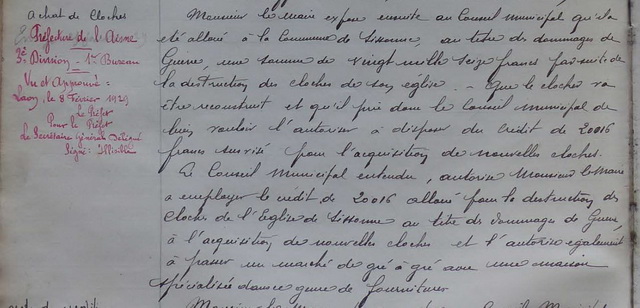 Achat de Cloches
Préfecture de l'Aisne
3e Division - 1er Bureau
Vu et Approuvé :
Laon, le 8 Février 1929
Le Préfet
Pour le Préfet
Le Secrétaire Général Délégué
Signé : Illisible
Monsieur le Maire expose ensuite au Conseil Municipal qu'il a
été alloué à la Commune de Sissonne, au titre des dommages de
Guerre, une somme de vingt mille seize francs par suite de
la destruction des cloches de son église. - Que le clocher va
être reconstruit et qu'il prie donc le Conseil Municipal de
bien vouloir l'autoriser à disposer du crédit de 20016
francs susvisé pour l'acquisition de nouvelles cloches.
Le Conseil Municipal entendu, autorise Monsieur le Maire
à employer le crédit de 20016 alloué pour la destruction des
Cloches de l'Eglise de Sissonne au titre des Dommages de Guerre,
à l'acquisition de nouvelles cloches et l'autorise également
à passer un marché de gré à gré avec une maison
spécialisée dans ce genre de fournitures